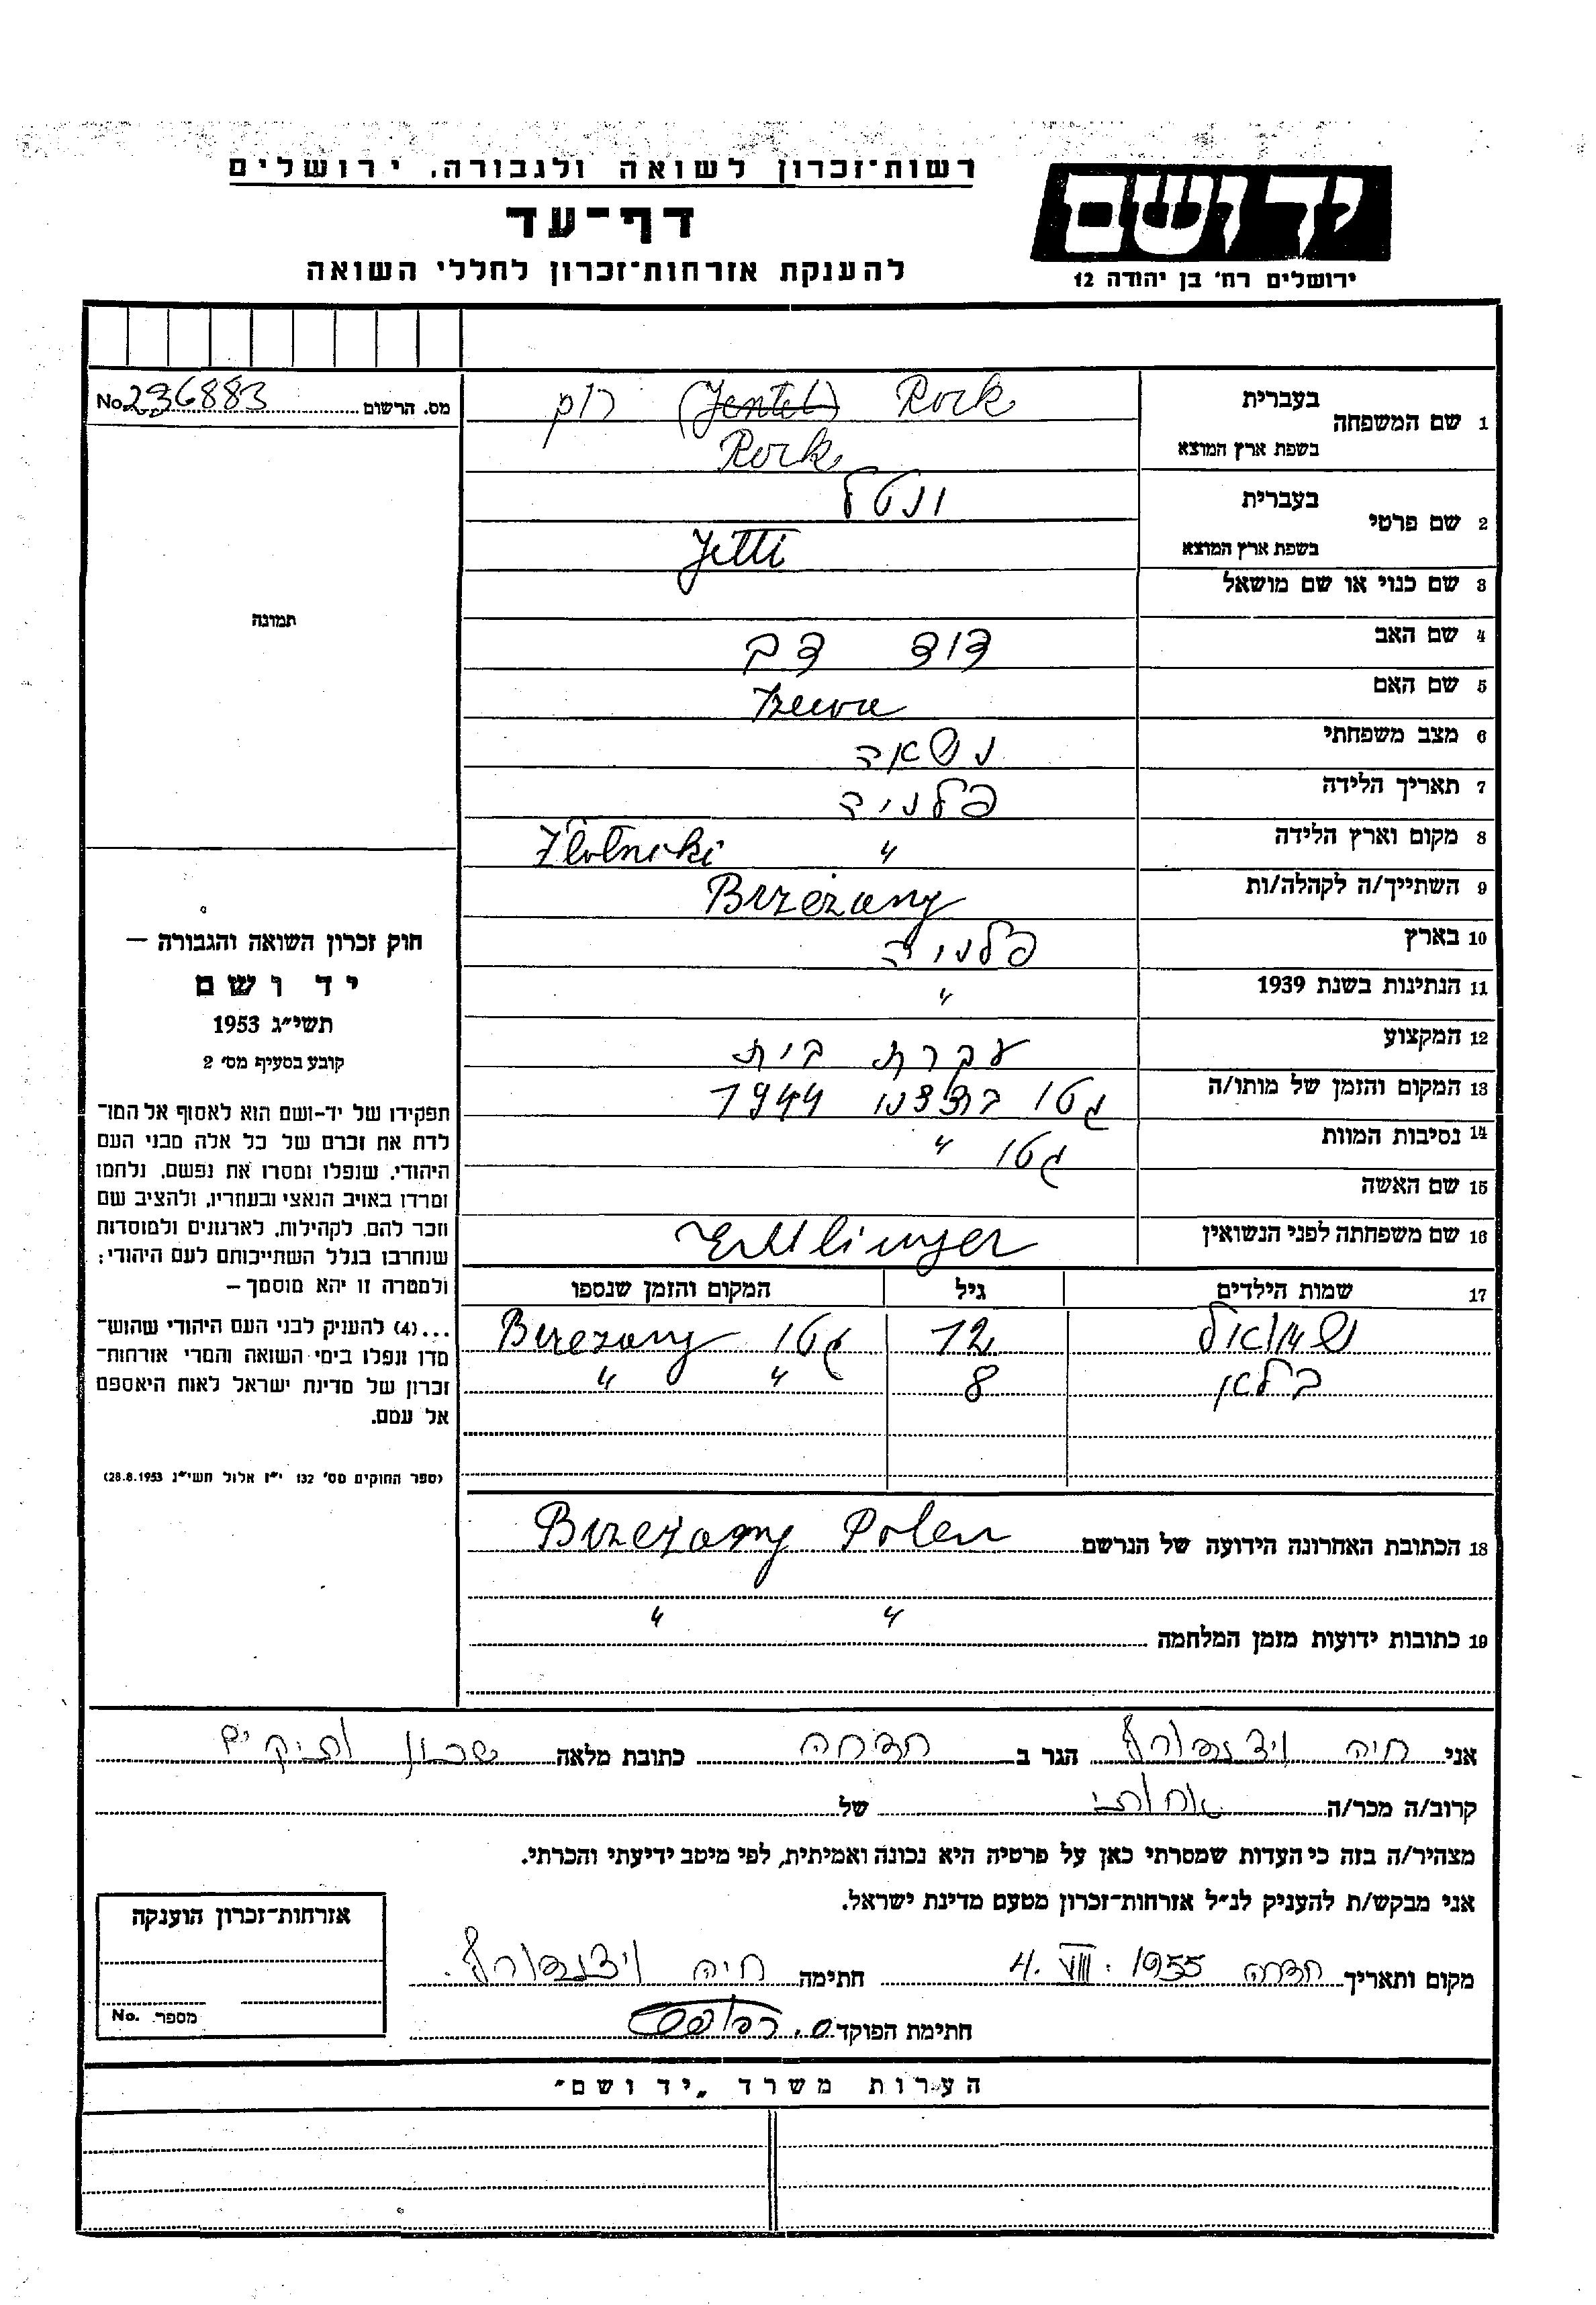 רשות־זכרון לשואה ולגבורה, ירושלים
דף־עד
להענקת אזרחות־זכרון לחללי השואה
יד ושם
ירושלים רח' בן יהודה 12
מס. הרשום No 236883
1 שם המשפחה
בעברית
רוק (Jentel) Rock
בשפת ארץ המוצא
Rock
2 שם פרטי
בעברית
ינטל
בשפת ארץ המוצא
Jetti
3 שם כנוי או שם מושאל
4 שם האב
דוד דב
5 שם האם
6 מצב משפחתי
נשאה
7 תאריך הלידה
פלניה
8 מקום וארץ הלידה
" Zlotnicki
9 השתייך/ה לקהלה/ות
Brzeżany
10 בארץ
פלניה
11 הנתינות בשנת 1939
"
12 המקצוע
עקרת בית
13 המקום והזמן של מותו/ה
גטו 1944
14 נסיבות המוות
גטו "
15 שם האשה
16 שם משפחתה לפני הנשואין
Ettlinger
17 שמות הילדים גיל המקום והזמן שנספו
שמואל 12 גטו Brzezany
8 " "
18 הכתובת האחרונה הידועה של הנרשם
Brzeżany Polen
19 כתובות ידועות מזמן המלחמה
" "
תמונה
חוק זכרון השואה והגבורה —
יד ושם
תשי״ג 1953
קובע בסעיף מס' 2
תפקידו של יד-ושם הוא לאסוף אל המו־
לדת את זכרם של כל אלה מבני העם
היהודי, שנפלו ומסרו את נפשם, נלחמו
ומרדו באויב הנאצי ובעוזריו, ולהציב שם
וזכר להם, לקהילות, לארגונים ולמוסדות
שנחרבו בגלל השתייכותם לעם היהודי;
ולמטרה זו יהא מוסמך —
...(4) להעניק לבני העם היהודי שהוש־
מדו ונפלו בימי השואה והמרי אזרחות־
זכרון של מדינת ישראל לאות היאספם
אל עמם.
(ספר החוקים מס' 132 י״ז אלול תשי״ג 28.8.1953)
אני חיה וידנפלד הגר ב חדרה כתובת מלאה שכון ותיקים
קרוב/ה מכר/ה אחותי של
מצהיר/ה בזה כי העדות שמסרתי כאן על פרטיה היא נכונה ואמיתית, לפי מיטב ידיעתי והכרתי.
אני מבקש/ת להעניק לנ״ל אזרחות־זכרון מטעם מדינת ישראל.
מקום ותאריך חדרה 4. VIII. 1955 חתימה חיה
חתימת הפוקד
אזרחות־זכרון הוענקה
מספר. No.
הערות משרד „יד ושם״